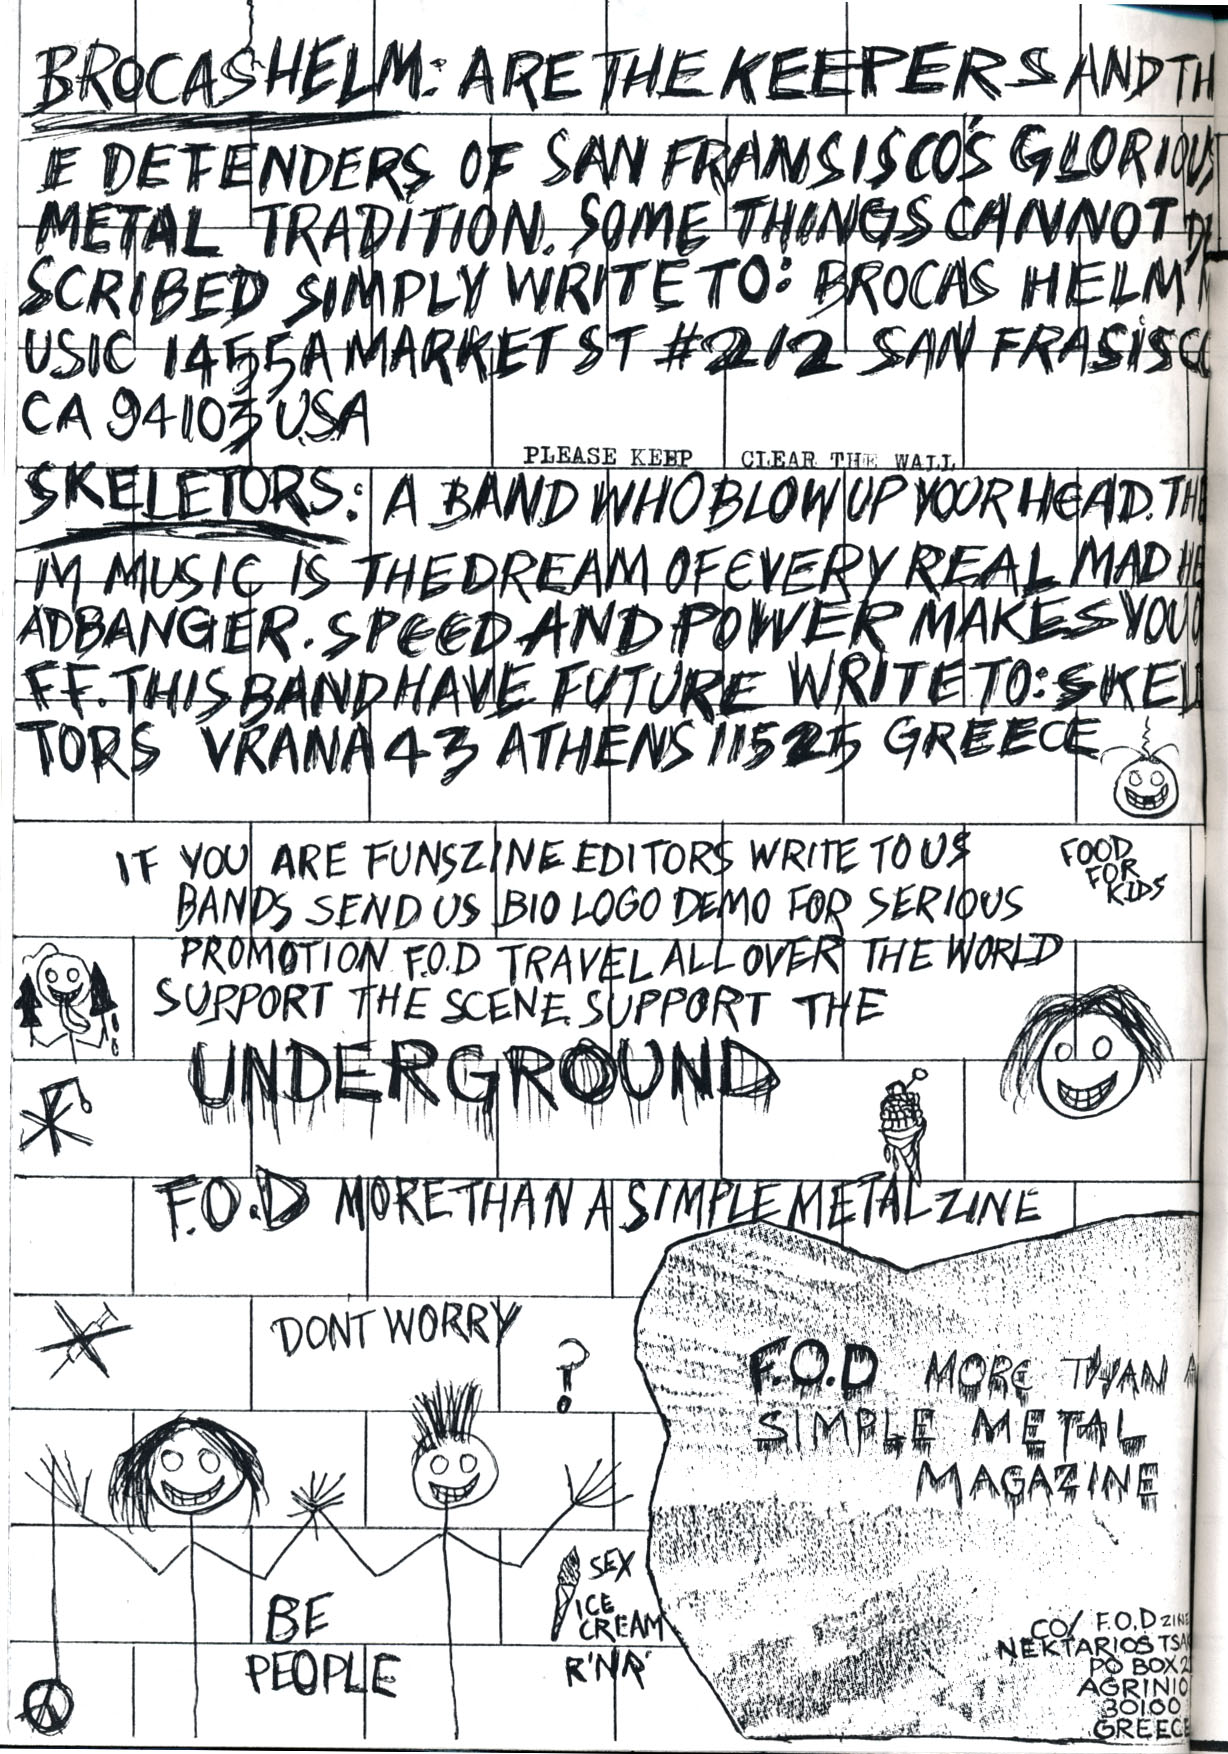 BROCAS HELM: ARE THE KEEPERS AND TH
E DEFENDERS OF SAN FRANSISCO'S GLORIOUS
METAL TRADITION. SOME THINGS CANNOT DE
SCRIBED SIMPLY WRITE TO: BROCAS HELM M
USIC 1455A MARKET ST #212 SAN FRASISCO
CA 94103 USA
PLEASE KEEP CLEAR THE WALL
SKELETORS: A BAND WHO BLOW UP YOUR HEAD. THE
IM MUSIC IS THE DREAM OF EVERY REAL MAD HE
ADBANGER. SPEED AND POWER MAKES YOU O
FF. THIS BAND HAVE FUTURE WRITE TO: SKEL
TORS VRANA 43 ATHENS 11525 GREECE
IF YOU ARE FUNSZINE EDITORS WRITE TO US
BANDS SEND US BIO LOGO DEMO FOR SERIOUS
PROMOTION F.O.D TRAVEL ALL OVER THE WORLD
SUPPORT THE SCENE. SUPPORT THE
UNDERGROUND
FOOD
FOR
KIDS
F.O.D MORE THAN A SIMPLE METAL ZINE
DONT WORRY
?
BE
PEOPLE
SEX
ICE
CREAM
R'N'R'
F.O.D MORE THAN A
SIMPLE METAL
MAGAZINE
CO/ F.O.D ZINE
NEKTARIOS
PO BOX 2
AGRINIO
30100
GREECE